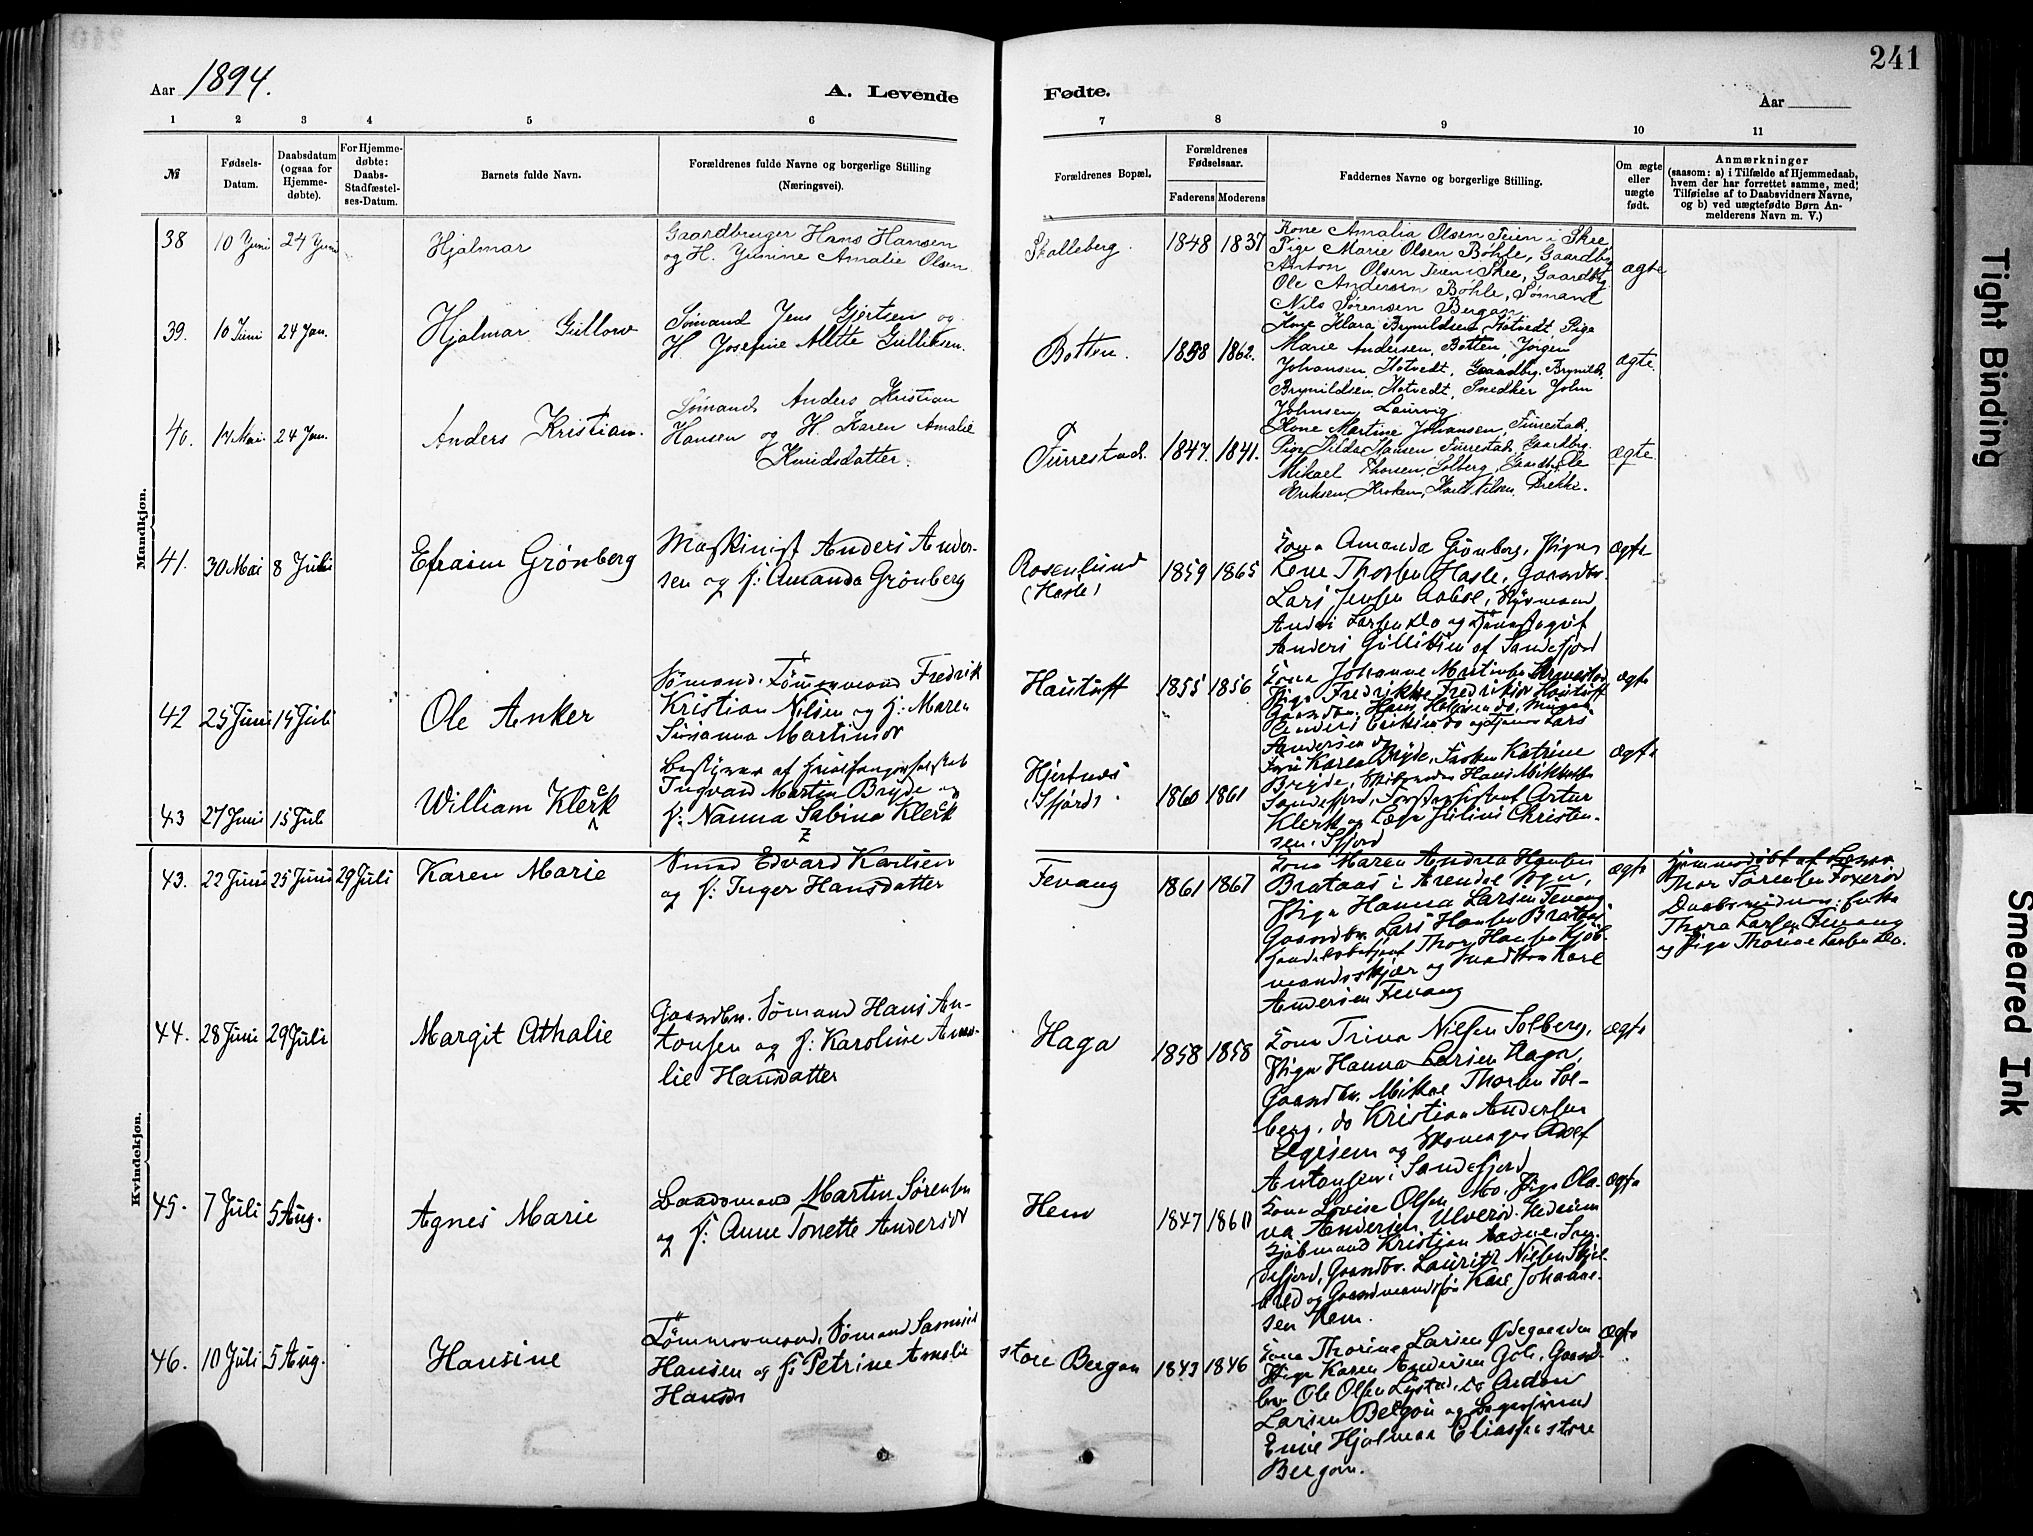 241
Aar 1894.
A. Levende Fødte.
Aar
1 2 3 4 5 6 7 8 9 10 11
№
Fødsels-Datum.
Daabsdatum (ogsaa for Hjemme-døbte).
For Hjemme-døbte: Daabs-Stadfæstel-ses-Datum.
Barnets fulde Navn.
Forældrenes fulde Navne og borgerlige Stilling
(Næringsvei).
Forældrenes Bopæl.
Forældrenes Fødselsaar.
Faderens Moderens
Faddernes Navne og borgerlige Stilling.
Om ægte eller uægte født.
Anmærkninger
(saasom: a) i Tilfælde af Hjemmedaab,
hvem der har forrettet samme, med
Tilføielse af to Daabsvidners Navne,
og b) ved uægtefødte Børn An-
melderens Navn m. V.)
Mandkjøn.
38 10 Juni 24 Juni Hjalmar
Gaardbruger Hans Hansen
og H. Junine Amalie Olsen
Skalleberg. 1848 1837
Kone Amalia Olsen Teien i Skee,
Pige Marie Olsen Bøhle, Gaardbg
Anton Olsen Teien i Skee, Gaardbg.
Ole Andersen Bøhle, Sømand
Nils Sørensen Bergan.
ægte
39. 10 Juni 24 Jun. Hjalmar Gullow
Sømand Jens Gjertsen og
H Josefine Alette Gulliksen.
Botten. 1858 1862.
Kone Klara Brynildsen, Hotvedt, Pige
Marie Andersen, Botten, Jørgen
Johansen Hotvedt, Gaardbg. Brynild
Brynildsen Hotvedt, Snedker John
Johnsen, Laurvig
ægte.
40. 17 Mai 24 Jun. Anders Kristian.
Sømand Anders Kristian
Hansen og H. Karen Amalie
Knudsdatter.
Furrestad. 1847. 1841.
Kone Martine Johansen, Furrestad,
Pige Hilda Hansen Furrestad, Gaardbg.
Mikael Thorsen, Solberg, Gaardbg. Ole
Eriksen, Kroken, Karl Nilsen, Brekke.
ægte.
41. 30 Mai 8 Juli Efraim Grönberg
Maskinist Anders Ander-
sen og H: Amanda Grönberg
Rosenlund
(Hasle)
1859 1865
Kone Amanda Grönberg, Pige
Lene Thorsen Hasle, Gaardbr.
Lars Jensen
Anders Larsen do og
Anders Gulliksen af Sandefjord
ægte
42 25 Juni 15 Juli Ole Anker
Sømand, Tømmermand Fredrik
Kristian Nilsen og H: Maren
Susanna Martinsdr
Hautuft 1855 1856
Kone Johanne
Pige Fredrikke Fredriksdr Hautuft
ægte
43 27 Juni 15 Juli William Klerck
Bestyrer af
Ingvard Martin Bryde og
H: Nanna Sabina Klerck
Hjertnes
Sfjord
1860 1861
Fru Karen Bryde, Frøken Katrine
Bryde, Skibsreder Hans
Sandefjord, Artur
Klerck og Læge Julius Christen-
sen. Sfjord
ægte
Kvindekjøn.
43. 22 Juni 25 Juni 29 Juli Karen Marie
Smed Edvard Karlsen
og H: Inger Hansdatter
Fevang 1861 1867
Kone Maren Andrea Hansen
Brataas i Arendal Sogn,
Pige Hanna Larsen Fevang
Gaardbr. Lars Hansen Brataas
Thor Hansen Kjøb-
mandsskjær og Karl
Andersen Fevang
ægte
Hjemmedøbt af Lærer
Thor Sørensen Foxerød
Daabsvidner: Enke
Thora Larsen Fevang
og Pige Thorine Larsen do.
44. 28 Juni 29 Juli Margit Athalie
Gaardbr. Sømand Hans An-
tonsen og H: Karoline Ama-
lie Hansdatter
Haga 1858 1858
Kone Trine Nilsen Solberg,
Pige Hanna Larsen Haga,
Gaardbr. Mikal Thorsen Sol-
berg, do Kristian Andersen
og Skomager Adolf
Antonsen i Sandefjord
ægte
45. 7 Juli 5 Aug. Agnes Marie
Baadsmand Martin Sørensen
og H: Anne Tonette Andersdr
Hem 1847 1860
Kone Lovise Olsen Mo, Pige Ola-
va Andersen Ulverød. Hedrum
Kjøbmand Kristian San-
defjord, Gaardbr. Lauritz Nilsen
og Gaardmandssøn Karl Johanne-
sen Hem.
ægte
46. 10 Juli 5 Aug. Hansine
Tømmermand, Sømand Rasmus
Hansen og H: Petrine Amalie
Hansdr
store Bergan 1843 1846
Kone Thorine Larsen Ødegaarden
Pige Karen Andersen Gaard-
br. Ole Olsen
Larsen Bergan og
Emil Hjalmar Eliassen store
Bergan.
ægte
Tight Binding
Smeared Ink